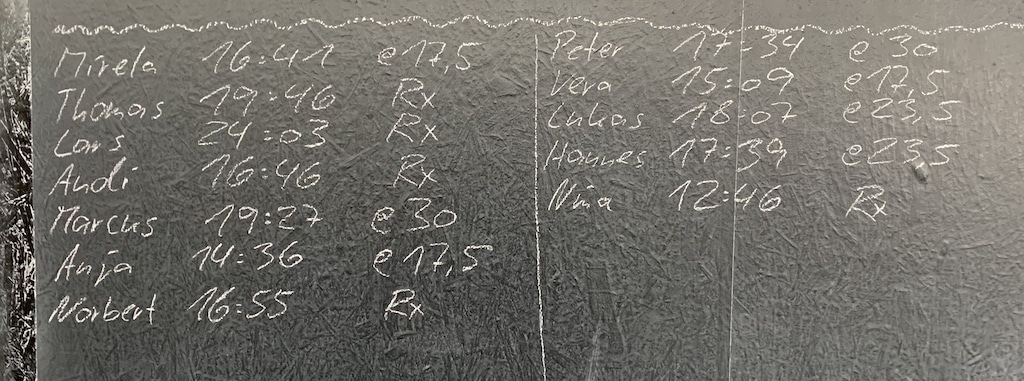 Mirela 16:41 @17,5
Thomas 19:46 Rx
Lars 24:03 Rx
Andi 16:46 Rx
Marcus 19:27 @30
Anja 14:36 @17,5
Norbert 16:55 Rx
Peter 17:34 @30
Vera 15:09 @17,5
Lukas 18:07 @23,5
Hannes 17:39 @23,5
Nina 12:46 Rx